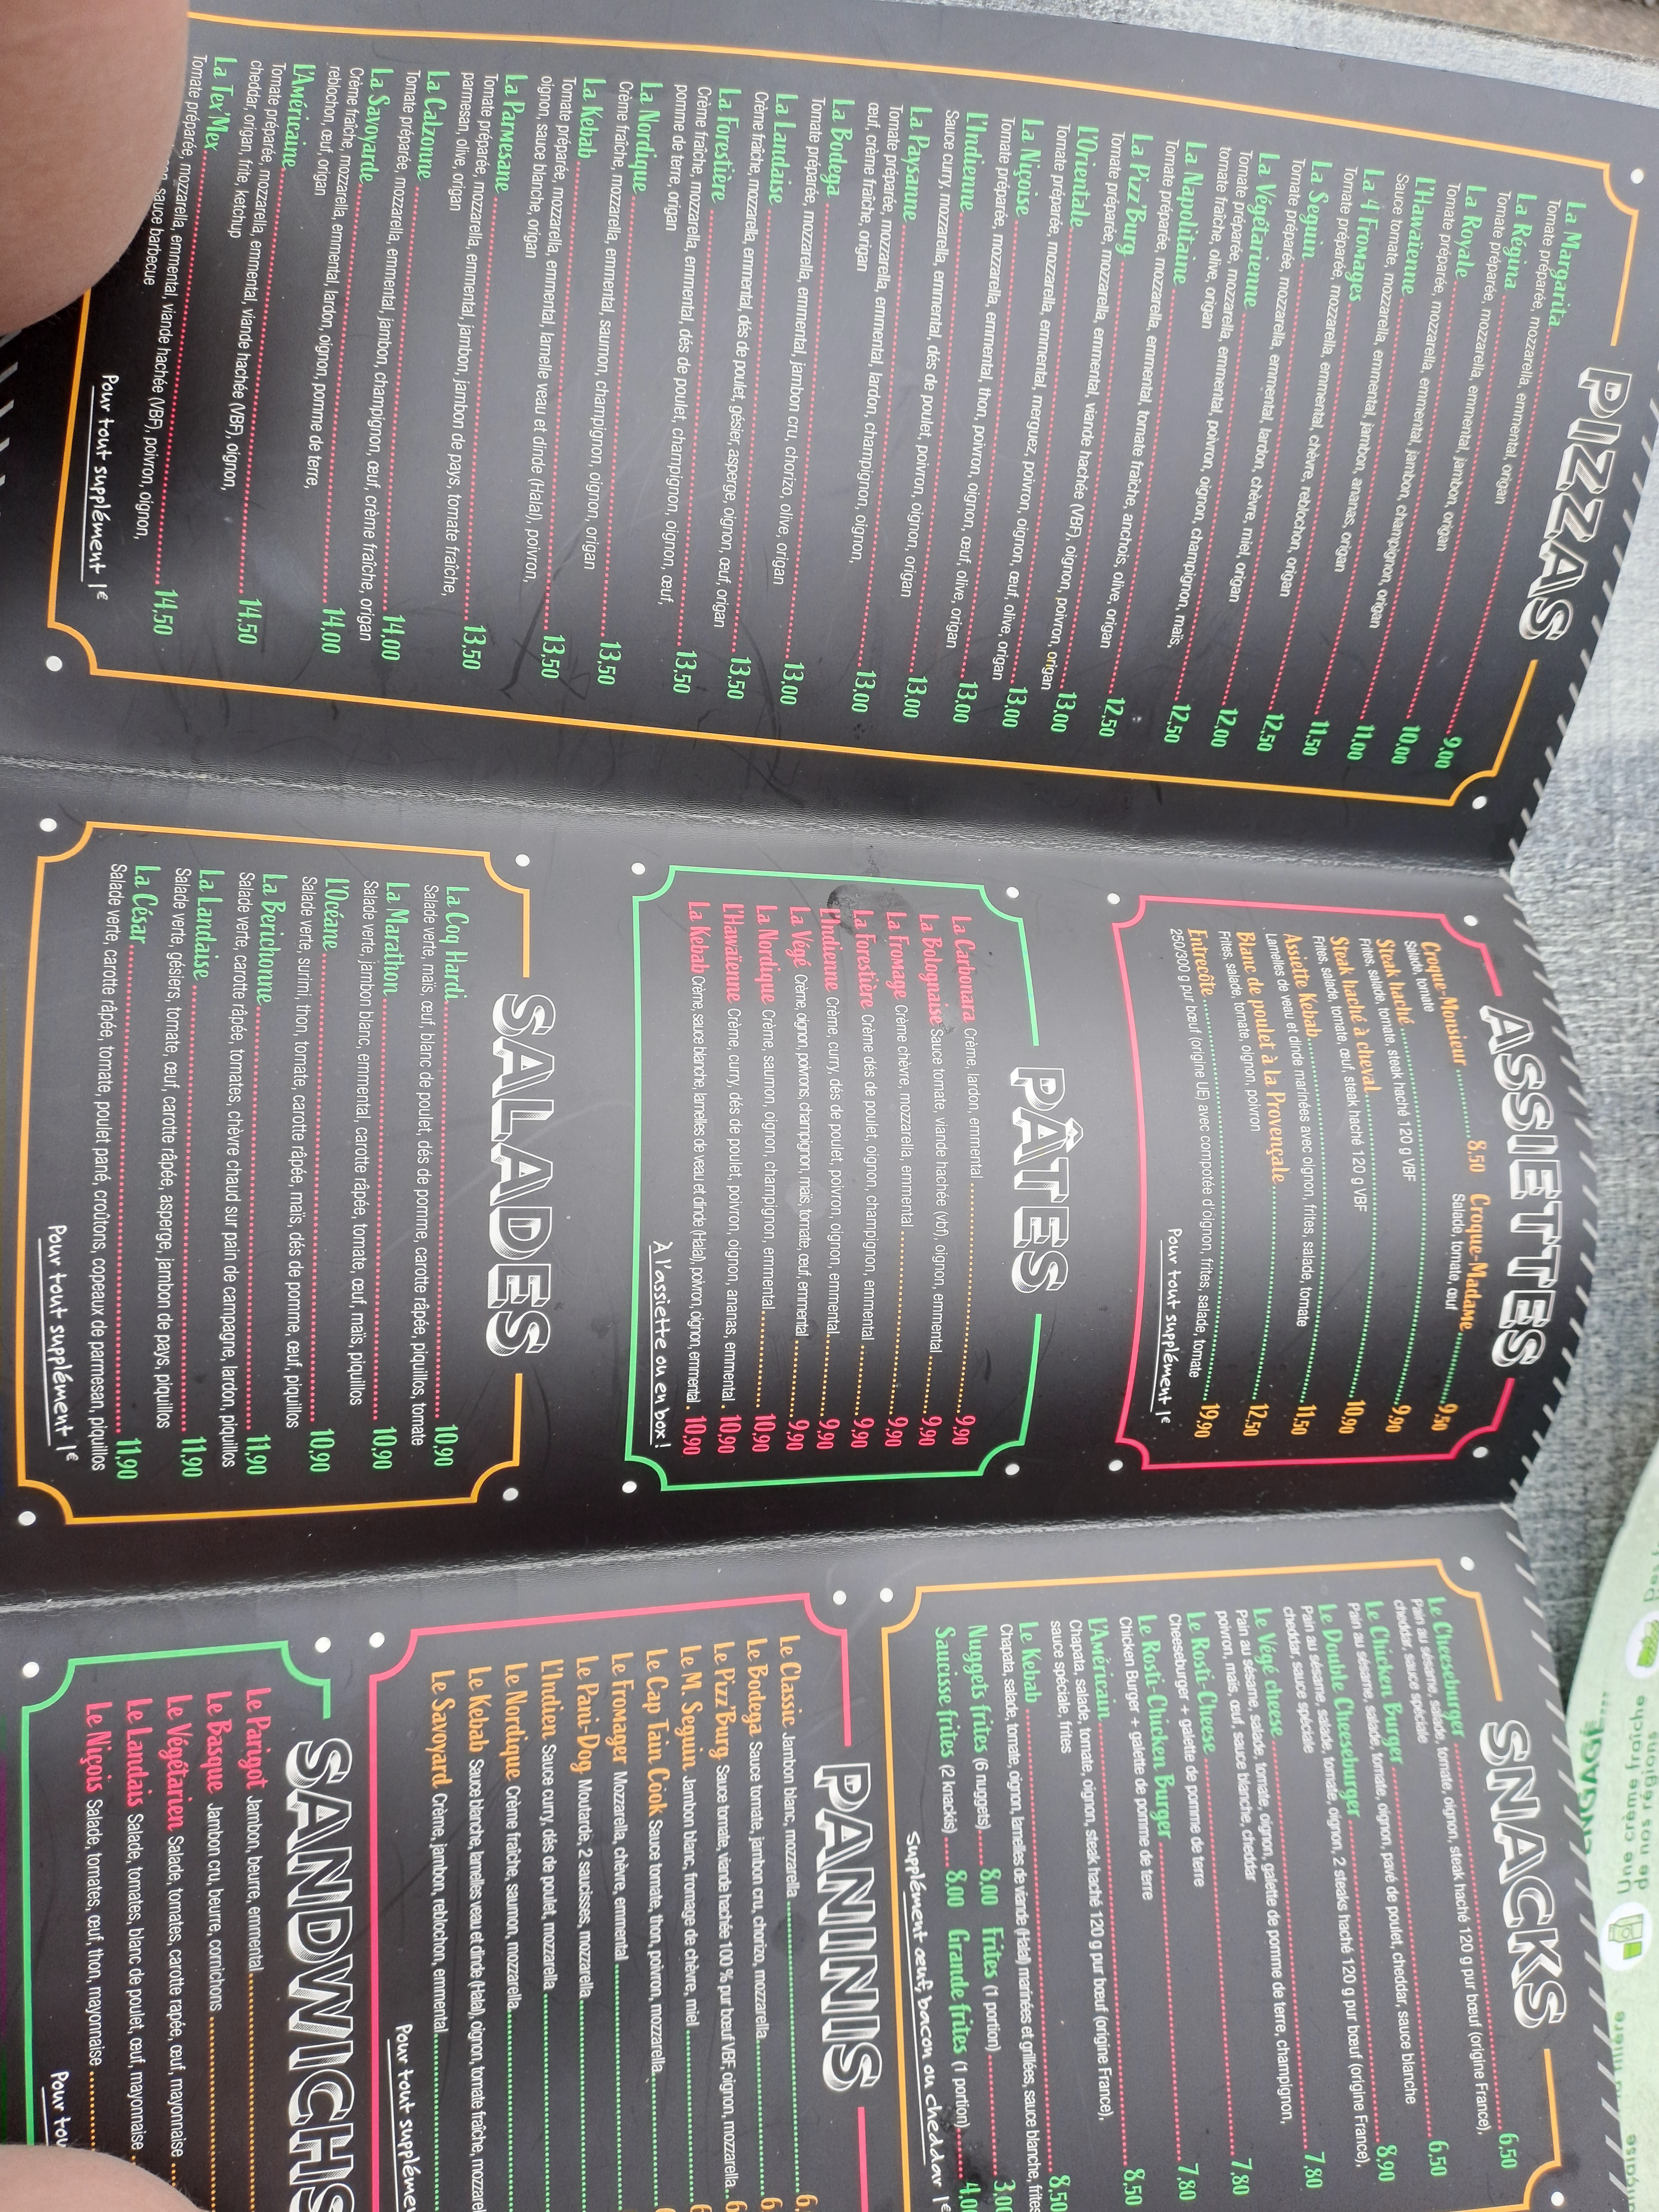 PIZZAS
La Margarita 9,00
Tomate préparée, mozzarella, emmental, origan
La Régina 10,00
Tomate préparée, mozzarella, emmental, jambon, origan
La Royale 11,00
Tomate préparée, mozzarella, emmental, jambon, champignon, origan
L'Hawaïenne 11,50
Sauce tomate, mozzarella, emmental, jambon, ananas, origan
La 4 Fromages 12,50
Tomate préparée, mozzarella, emmental, chèvre, reblochon, origan
La Seguin 12,00
Tomate préparée, mozzarella, emmental, lardon, chèvre, miel, origan
La Végétarienne 12,50
Tomate préparée, mozzarella, emmental, poivron, oignon, champignon, maïs,
tomate fraîche, olive, origan
La Napolitaine 12,50
Tomate préparée, mozzarella, emmental, tomate fraîche, anchois, olive, origan
La Pizz'Burg 13,00
Tomate préparée, mozzarella, emmental, viande hachée (VBF), oignon, poivron, origan
L'Orientale 13,00
Tomate préparée, mozzarella, emmental, merguez, poivron, oignon, œuf, olive, origan
La Niçoise 13,00
Tomate préparée, mozzarella, emmental, thon, poivron, oignon, œuf, olive, origan
L'Indienne 13,00
Sauce curry, mozzarella, emmental, dés de poulet, poivron, oignon, origan
La Paysanne 13,00
Tomate préparée, mozzarella, emmental, lardon, champignon, oignon,
œuf, crème fraîche, origan
La Bodega 13,00
Tomate préparée, mozzarella, emmental, jambon cru, chorizo, olive, origan
La Landaise 13,50
Crème fraîche, mozzarella, emmental, dés de poulet, gésier, asperge, oignon, œuf, origan
La Forestière 13,50
Crème fraîche, mozzarella, emmental, dés de poulet, champignon, oignon, œuf,
pomme de terre, origan
La Nordique 13,50
Crème fraîche, mozzarella, emmental, saumon, champignon, oignon, origan
La Kebab 13,50
Tomate préparée, mozzarella, emmental, lamelle veau et dinde (Halal), poivron,
oignon, sauce blanche, origan
La Parmesane 13,50
Tomate préparée, mozzarella, emmental, jambon, jambon de pays, tomate fraîche,
parmesan, olive, origan
La Calzonne 14,00
Tomate préparée, mozzarella, emmental, jambon, champignon, œuf, crème fraîche, origan
La Savoyarde 14,00
Crème fraîche, mozzarella, emmental, lardon, oignon, pomme de terre,
reblochon, œuf, origan
L'Américaine 14,50
Tomate préparée, mozzarella, emmental, viande hachée (VBF), oignon,
cheddar, origan, frite, ketchup
La Tex'Mex 14,50
Tomate préparée, mozzarella, emmental, viande hachée (VBF), poivron, oignon,
sauce barbecue
Pour tout supplément 1€
ASSIETTES
Croque-Monsieur 8,50 Croque-Madame 9,50
Salade, tomate Salade, tomate, œuf
Steak haché 9,90
Frites, salade, tomate, steak haché 120 g VBF
Steak haché à cheval 10,90
Frites, salade, tomate, œuf, steak haché 120 g VBF
Assiette Kebab 11,50
Lamelles de veau et dinde marinées avec oignon, frites, salade, tomate
Blanc de poulet à la Provençale 12,50
Frites, salade, tomate, oignon, poivron
Entrecôte 19,90
250/300 g pur bœuf (origine UE) avec compotée d'oignon, frites, salade, tomate
Pour tout supplément 1€
PÂTES
La Carbonara Crème, lardon, emmental 9,90
La Bolognaise Sauce tomate, viande hachée (vbf), oignon, emmental 9,90
La Fromage Crème chèvre, mozzarella, emmental 9,90
La Forestière Crème dés de poulet, oignon, champignon, emmental 9,90
L'Indienne Crème, curry, dés de poulet, poivron, oignon, emmental 9,90
La Végé Crème, oignon, poivrons, champignon, maïs, tomate, œuf, emmental 9,90
La Nordique Crème, saumon, oignon, champignon, emmental 10,90
L'Hawaïenne Crème, curry, dés de poulet, poivron, oignon, ananas, emmental 10,90
La Kebab Crème, sauce blanche, lamelles de veau et dinde (Halal), poivron, oignon, emmental 10,90
À l'assiette ou en box !
SALADES
La Coq Hardi 10,90
Salade verte, maïs, œuf, blanc de poulet, dés de pomme, carotte râpée, piquillos, tomate
La Marathon 10,90
Salade verte, jambon blanc, emmental, carotte râpée, tomate, œuf, maïs, piquillos
L'Océane 10,90
Salade verte, surimi, thon, tomate, carotte râpée, maïs, dés de pomme, œuf, piquillos
La Berichonne 11,90
Salade verte, carotte râpée, tomates, chèvre chaud sur pain de campagne, lardon, piquillos
La Landaise 11,90
Salade verte, gésiers, tomate, œuf, carotte râpée, asperge, jambon de pays, piquillos
La César 11,90
Salade verte, carotte râpée, tomate, poulet pané, croûtons, copeaux de parmesan, piquillos
Pour tout supplément 1€
SNACKS
Le Cheeseburger 6,50
Pain au sésame, salade, tomate, oignon, steak haché 120 g pur bœuf (origine France),
cheddar, sauce spéciale
Le Chicken Burger 6,50
Pain au sésame, salade, tomate, oignon, pavé de poulet, cheddar, sauce blanche
Le Double Cheeseburger 8,90
Pain au sésame, salade, tomate, oignon, 2 steaks haché 120 g pur bœuf (origine France),
cheddar, sauce spéciale
Le Végé cheese 7,80
Pain au sésame, salade, tomate, oignon, galette de pomme de terre, champignon,
poivron, maïs, œuf, sauce blanche, cheddar
Le Rosti-Cheese 7,80
Cheeseburger + galette de pomme de terre
Le Rosti-Chicken Burger 7,80
Chicken Burger + galette de pomme de terre
L'Américain 8,50
Chapata, salade, tomate, oignon, steak haché 120 g pur bœuf (origine France),
sauce spéciale, frites
Le Kebab 8,50
Chapata, salade, tomate, oignon, lamelles de viande (Halal) marinées et grillées, sauce blanche, frites
Nuggets frites (6 nuggets) 8,00 Frites (1 portion) 3,00
Saucisse frites (2 knacks) 8,00 Grande frites (1 portion) 4,0
Supplément œuf, bacon ou cheddar 1€
PANINIS
Le Classic Jambon blanc, mozzarella 6,
Le Bodega Sauce tomate, jambon cru, chorizo, mozzarella 6
Le Pizz'Burg Sauce tomate, viande hachée 100 % pur bœuf VBF, oignon, mozzarella 6
Le M. Seguin Jambon blanc, fromage de chèvre, miel 6
Le Cap Tain Cook Sauce tomate, thon, poivron, mozzarella
Le Fromager Mozzarella, chèvre, emmental
Le Pani-Dog Moutarde, 2 saucisses, mozzarella
L'Indien Sauce curry, dés de poulet, mozzarella
Le Nordique Crème fraîche, saumon, mozzarella
Le Kebab Sauce blanche, lamelles veau et dinde (Halal), oignon, tomate fraîche, mozzarel
Le Savoyard Crème, jambon, reblochon, emmental
Pour tout supplémen
SANDWICHS
Le Parigot Jambon, beurre, emmental
Le Basque Jambon cru, beurre, cornichons
Le Végétarien Salade, tomates, carotte rapée, œuf, mayonnaise
Le Landais Salade, tomates, blanc de poulet, œuf, mayonnaise
Le Niçois Salade, tomates, œuf, thon, mayonnaise
Pour tou
ENGAGÉ
Une crème fraîche
de nos régions